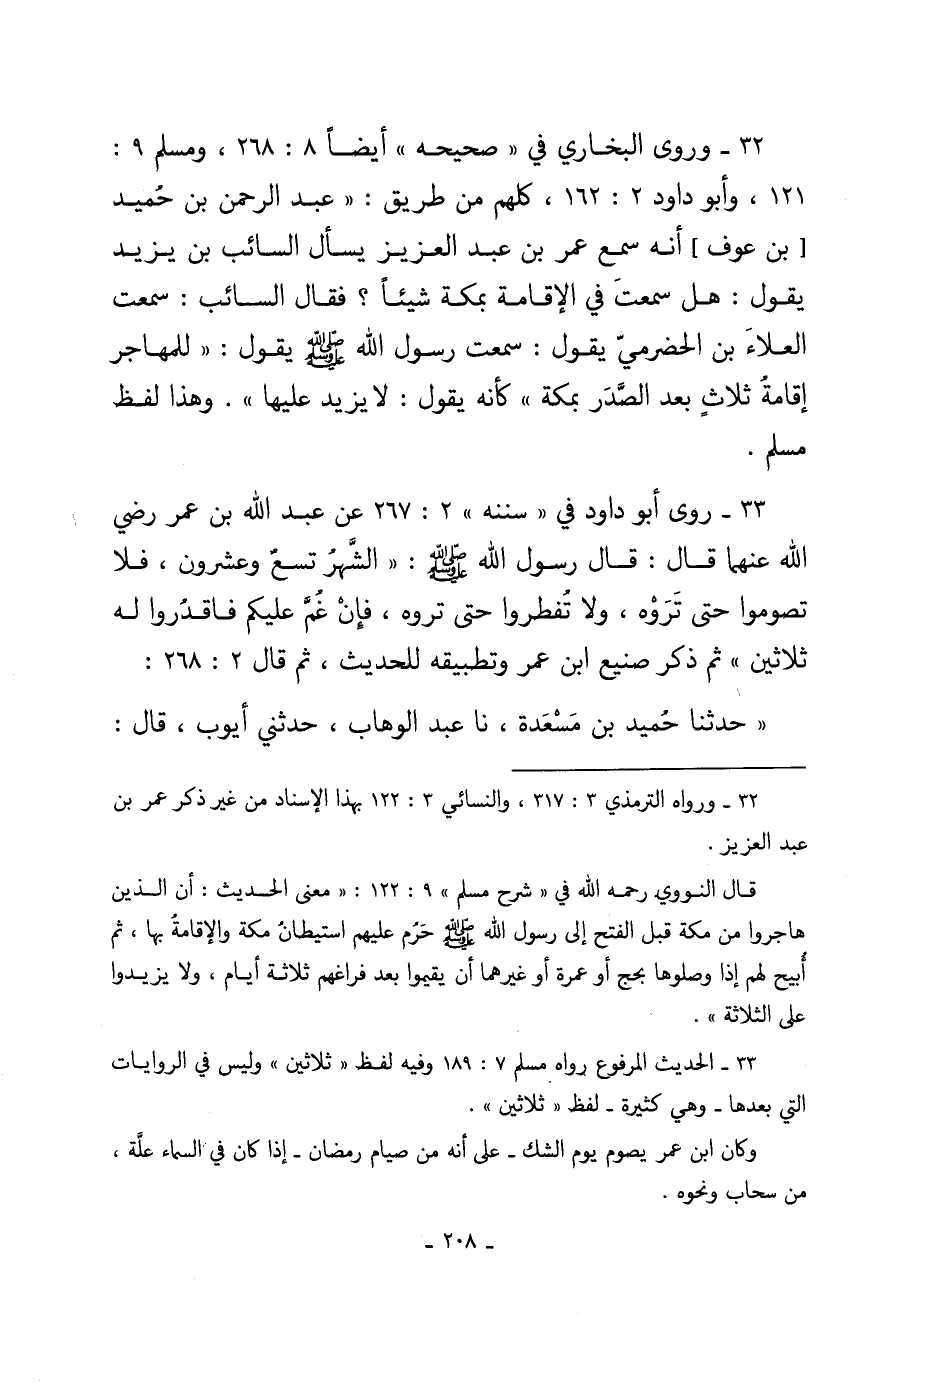 ٣٢ ـ وروى البخاري في « صحيحه » أيضاً ٨ : ٢٦٨ ، ومسلم ٩ :
١٢١ ، وأبو داود ٢ : ١٦٢ ، كلهم من طريق : « عبد الرحمن بن حُميد
[ بن عوف ] أنه سمع عمر بن عبد العزيز يسأل السائب بن يزيد
يقول : هل سمعتَ في الإقامة بمكة شيئاً ؟ فقال السائب : سمعت
العلاءَ بن الحضرميّ يقول : سمعت رسول الله ﷺ يقول : « للمهاجر
إقامةُ ثلاثٍ بعد الصَّدَر بمكة » كأنه يقول : لا يزيد عليها » . وهذا لفظ
مسلم .
٣٣ ـ روى أبو داود في « سننه » ٢ : ٢٦٧ عن عبد الله بن عمر رضي
الله عنهما قال : قال رسول الله ﷺ : « الشَّهرُ تسعٌ وعشرون ، فلا
تصوموا حتى تَرَوْه ، ولا تُفطروا حتى تروه ، فإنْ غُمَّ عليكم فاقدُروا له
ثلاثين » ثم ذكر صنيع ابن عمر وتطبيقه للحديث ، ثم قال ٢ : ٢٦٨ :
« حدثنا حُميد بن مَسْعَدة ، نا عبد الوهاب ، حدثني أيوب ، قال :
٣٢ ـ ورواه الترمذي ٣ : ٣١٧ ، والنسائي ٣ : ١٢٢ بهذا الإسناد من غير ذكر عمر بن
عبد العزيز .
قال النووي رحمه الله في « شرح مسلم » ٩ : ١٢٢ : « معنى الحديث : أن الذين
هاجروا من مكة قبل الفتح إلى رسول الله ﷺ حَرُم عليهم استيطانُ مكة والإقامةُ بها ، ثم
أُبيح لهم إذا وصلوها بحج أو عمرة أو غيرهما أن يقيموا بعد فراغهم ثلاثة أيام ، ولا يزيدوا
على الثلاثة » .
٣٣ ـ الحديث المرفوع رواه مسلم ٧ : ١٨٩ وفيه لفظ « ثلاثين » وليس في الروايات
التي بعدها ـ وهي كثيرة ـ لفظ « ثلاثين » .
وكان ابن عمر يصوم يوم الشك ـ على أنه من صيام رمضان ـ إذا كان في السماء علَّة ،
من سحاب ونحوه .
ـ ٢٠٨ ـ